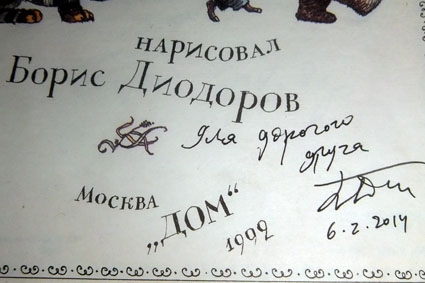 НАРИСОВАЛ
Борис Диодоров
для дорогого
друга
Москва
„ДОМ“
1992
6.2.2014